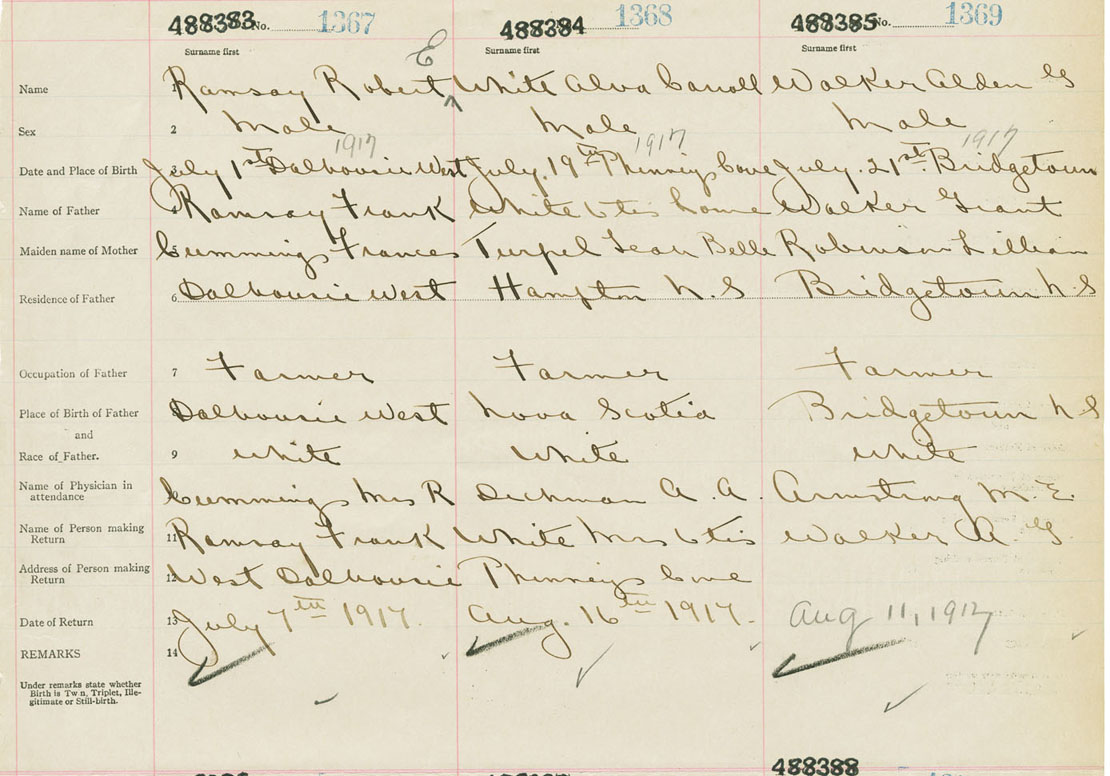 488383 No. 1367 488384 1368 488385 No. 1369
Surname first Surname first Surname first
E
Name 1 Ramsay Robert White Alva Carroll Walker Alden G
Sex 2 Male Male Male
1917 1917 1917
Date and Place of Birth 3 July 1st Dalhousie West July. 19th Phinneys Cove July. 21st. Bridgetown
Name of Father 4 Ramsay Frank White Otis Walker Grant
Maiden name of Mother 5 Cummings Frances Turpel Leah Belle Robinson Lillian
Residence of Father 6 Dalhousie West Hampton N.S Bridgetown N.S
Occupation of Father 7 Farmer Farmer Farmer
Place of Birth of Father 8 Dalhousie West Nova Scotia Bridgetown N S
and
Race of Father. 9 White White White
Name of Physician in
attendance Cummings Mrs R Dechman A. A. Armstrong M. E.
Name of Person making
Return 11 Ramsay Frank White Mrs Otis Walker A. G.
Address of Person making
Return 12 West Dalhousie Phinneys Cove
Date of Return 13 July 7th 1917. Aug. 16th 1917. Aug 11, 1917
REMARKS 14
Under remarks state whether
Birth is Tw n, Triplet, Ille-
gitimate or Still-birth.
488388